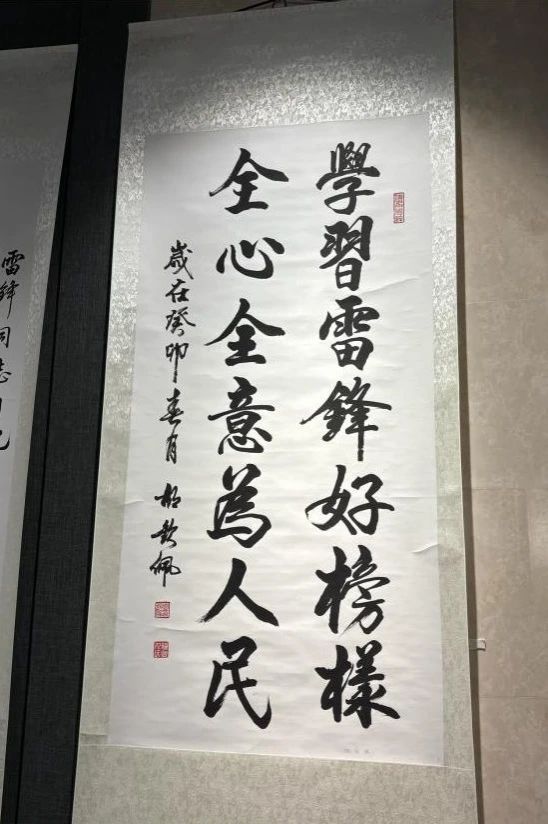 學習雷鋒好榜樣
全心全意為人民
歲在癸卯春月 胡敦佩
雷鋒同志